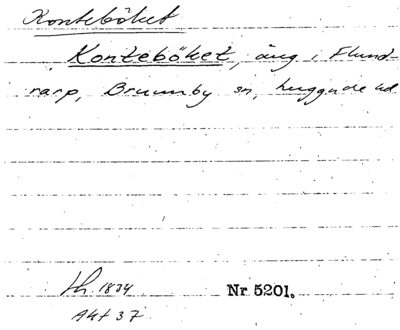 Konteböket
Konteböket, äng i Flund-
rarp, Brunnby sn, huggude ud
Lh. 1834
Nr 5201.
Akt 37